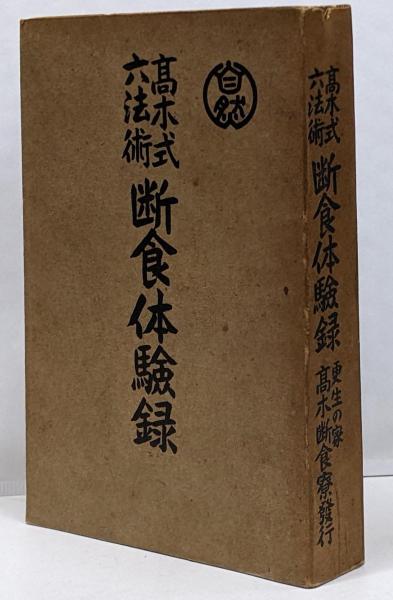 自然
高木式
六法術
断食体験録
高木式
六法術
断食体験録
更生の家
高木断食寮發行